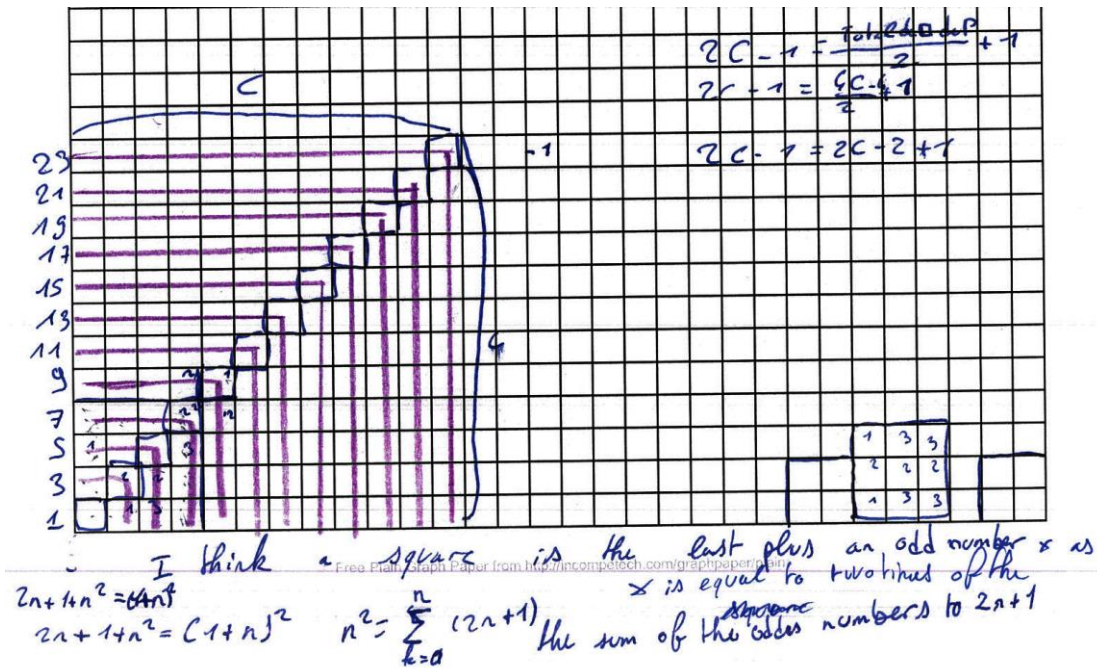 C
2C - 1 = Total de □ de P / 2 + 1
2C - 1 = 4C - 4 / 2 + 1
2C - 1 = 2C - 2 + 1
- 1
23
21
19
17
15
13
11
9
7
5
3
1
1 3 3
2 2 2
1 3 3
I think a square is the last plus an odd number x as
Free Plain Graph Paper from http://incompetech.com/graphpaper/plain/
x is equal to two times of the
2n + 1 + n² = (1+n)²
2n + 1 + n² = (1+n)²
n² = n ∑ k=0 (2n+1)
the sum of the odds numbers to 2n+1